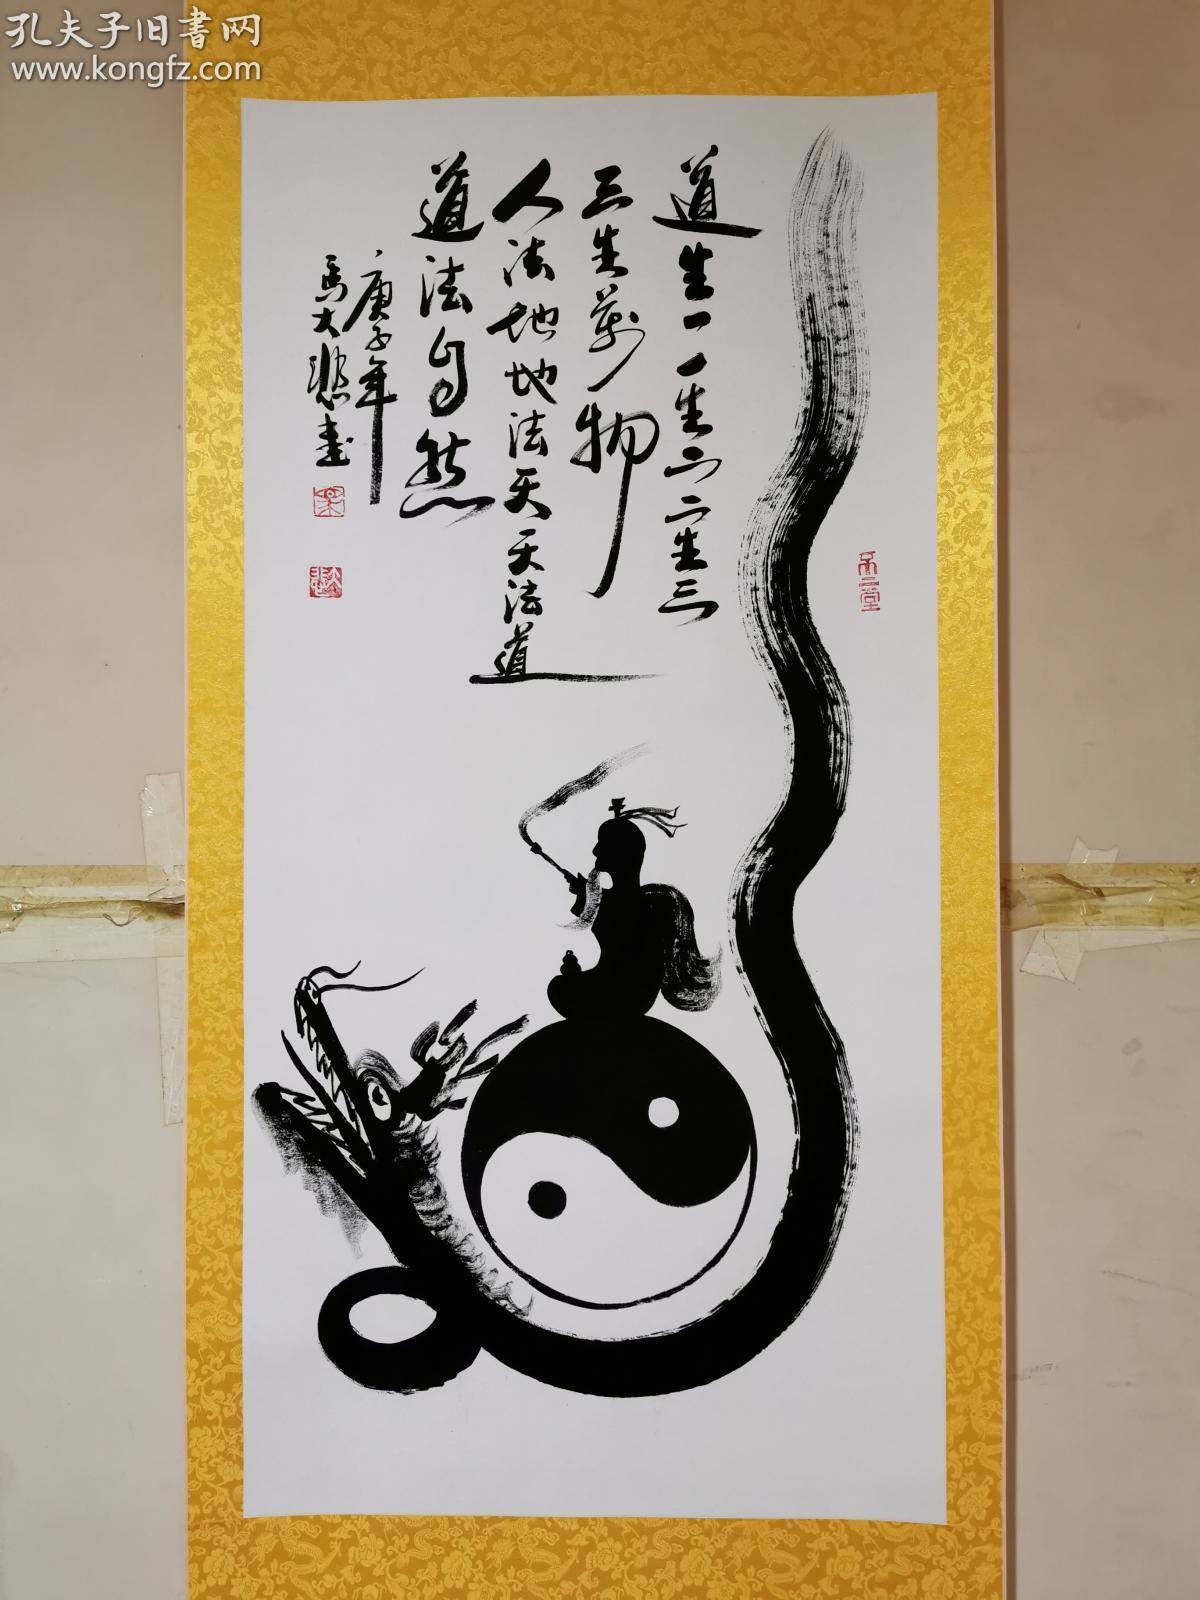 孔夫子旧書网
www.kongfz.com
道生一一生二二生三
三生万物
人法地地法天天法道
道法自然
庚子年
馬大悲画
不二堂